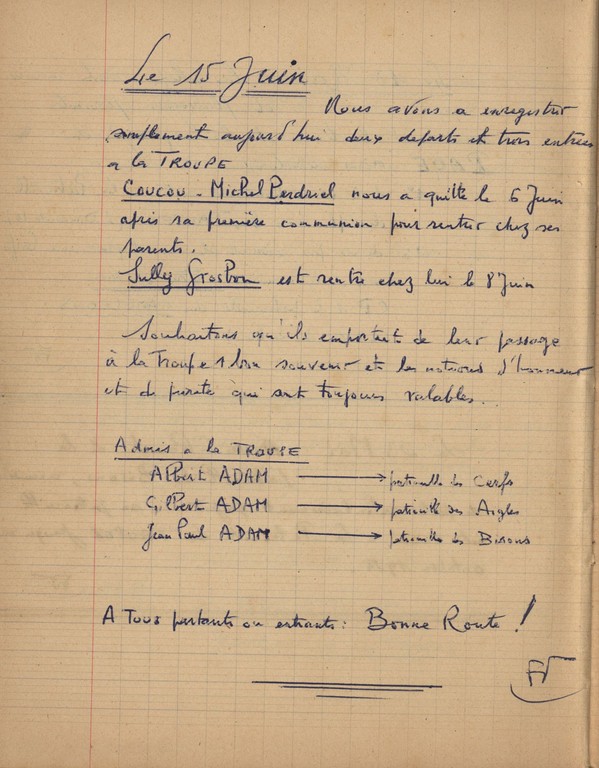 Le 15 Juin
Nous avons a enregistrer
simplement aujourd'hui deux departs et trois entrées
a la TROUPE
COUCOU - Michel Perdriel nous a quitté le 6 Juin
après sa première communion pour rentrer chez ses
parents.
Sully Grosbon est rentré chez lui le 8 Juin
Souhaitons qu'ils emportent de leur passage
à la Troupe 1 bon souvenir et les notions d'honneur
et de pureté qui sont toujours valables.
Admis a la TROUPE
Albert ADAM → patrouille des Cerfs
Gilbert ADAM → patrouille des Aigles
Jean Paul ADAM → patrouille des Bisons
A Tous partants ou entrants : Bonne Route !